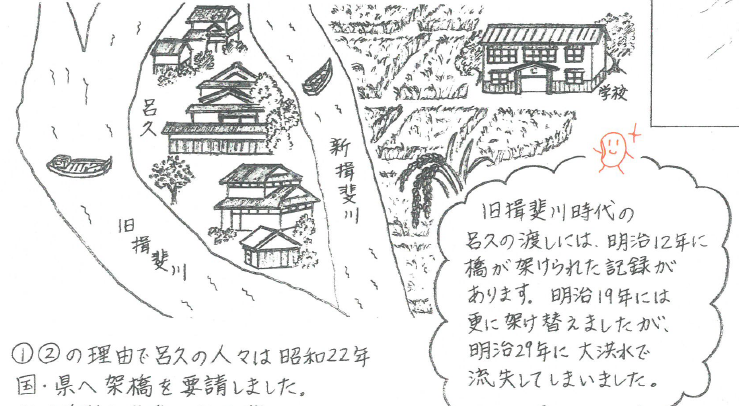 学校
呂久
新揖斐川
旧揖斐川
旧揖斐川時代の
呂久の渡しには、明治12年に
橋が架けられた記録が
あります。明治19年には
更に架け替えましたが、
明治29年に大洪水で
流失してしまいました。
①②の理由で呂久の人々は昭和22年
国・県へ架橋を要請しました。